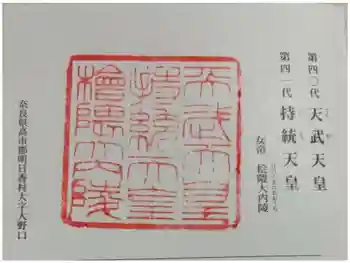 第四〇代 天武天皇
第四一代 持統天皇
女帝 桧隈大内陵
天武天皇
持統天皇
檜隈大内陵
奈良県高市郡明日香村大字大野口